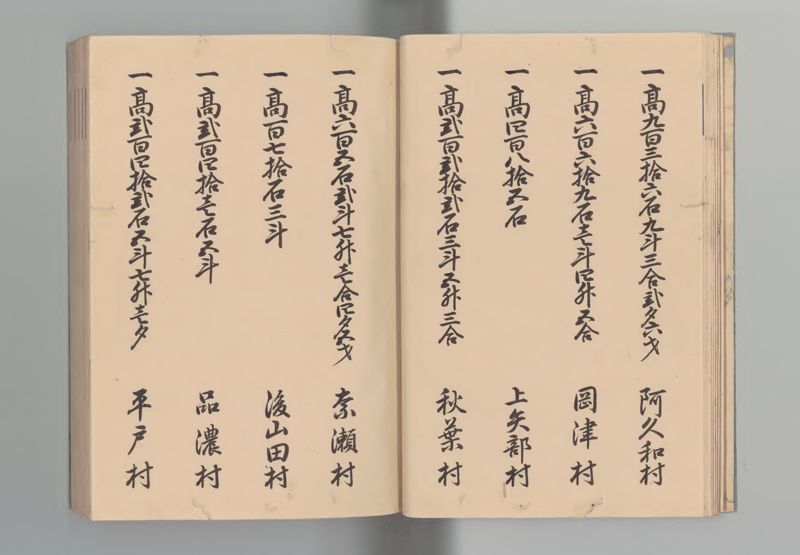 一高九百三拾六石九斗三合弐夕六才 阿久和村
一高六百六拾九石壱斗四升五合 岡津村
一高四百八拾五石 上矢部村
一高弐百弐拾弐石三斗五升三合 秋葉村
一高六百五石弐斗七升壱合四夕五才 奈瀬村
一高百七拾石三斗 後山田村
一高弐百四拾壱石五斗 品濃村
一高弐百四拾弐石五斗七升壱夕 平戸村